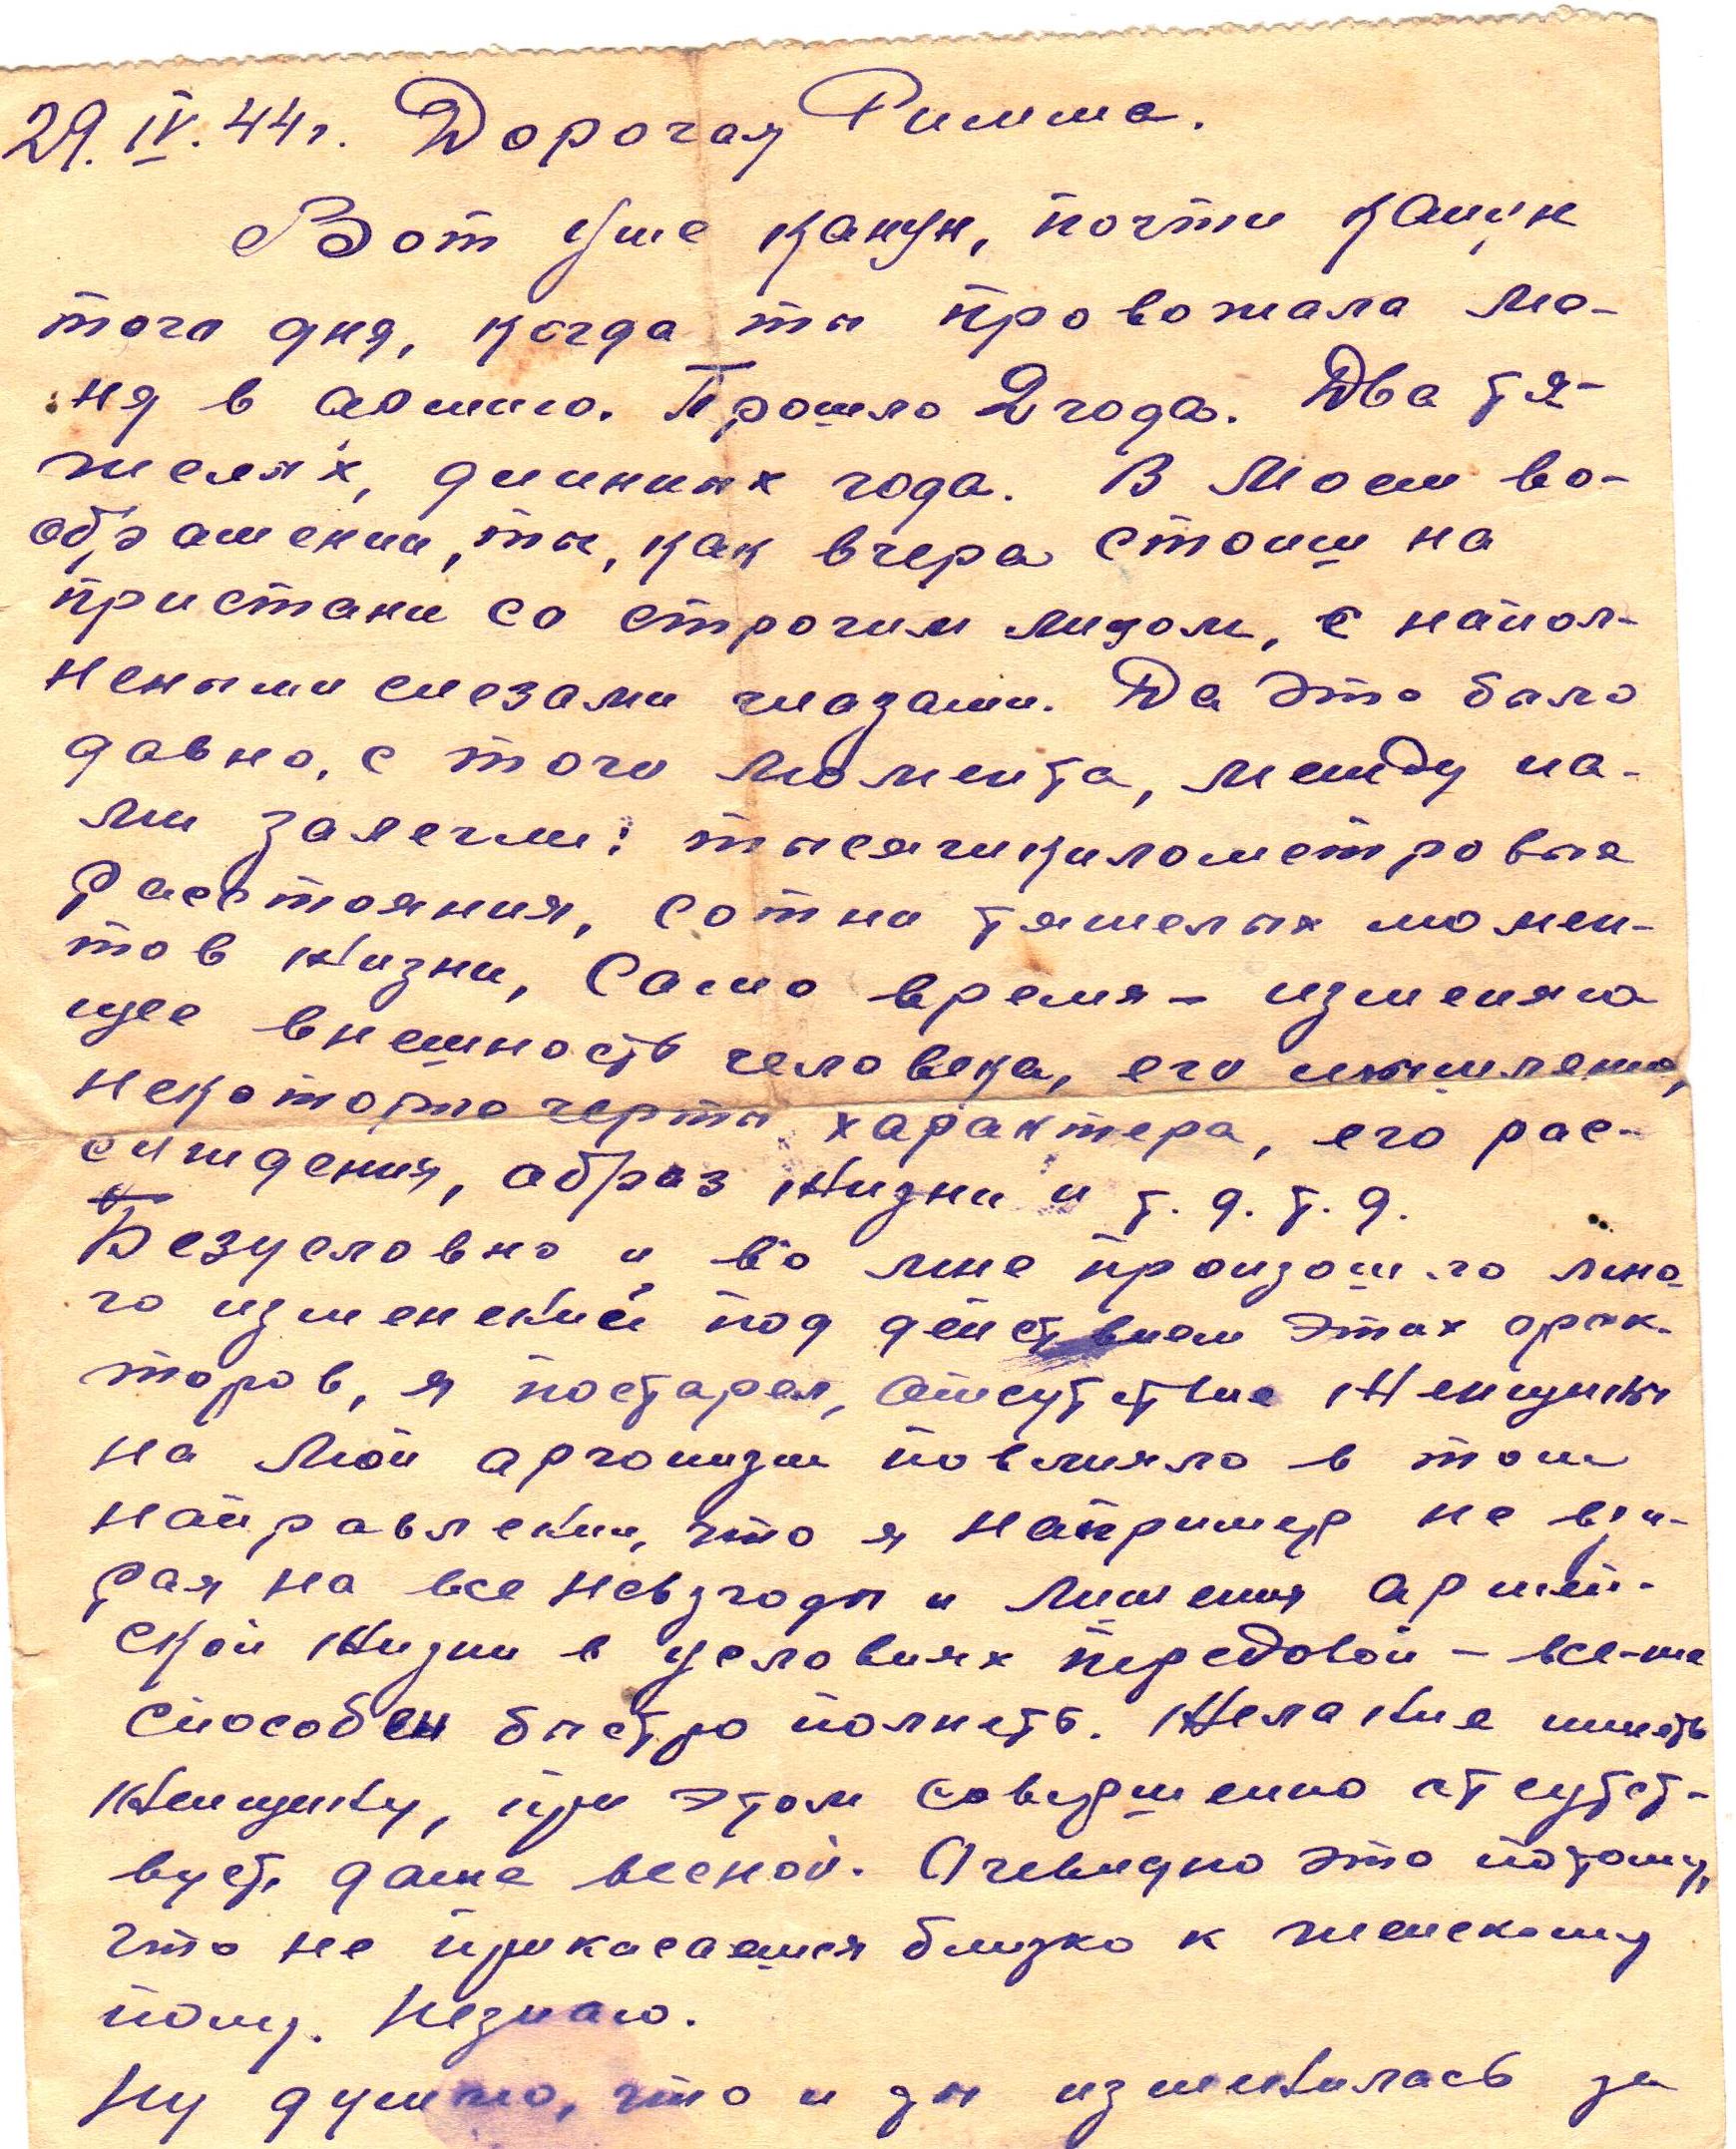 29. IV. 44 г. Дорогая Римма.
Вот уже канун, почти канун
того дня, когда ты провожала ме-
ня в армию. Прошло 2 года. Два тя-
желых, длинных года. В моем во-
ображении, ты, как вчера стоиш на
пристани со строгим лицом, с напол-
неными слезами глазами. Да это было
давно, с того момента, между на-
ми залегли: тысячикилометровые
расстояния, сотни тяжелых момен-
тов жизни, само время – изменяю
щее внешность человека, его мышление,
некоторые черты характера, его рас-
суждения, образ жизни и т. д. т. д.
Безусловно и во мне произошло мно-
го изменений под действием этих фак-
торов, я постарел, отсутствие женщины
на мой организм повлияло в том
направлении, что я например не взи-
рая на все невзгоды и лишения армей-
ской жизни в условиях передовой – все-же
способен быстро полнеть. Желание иметь
женщину, при этом совершенно отсутст-
вует, даже весной. Очевидно это потому,
что не прикасаешся близко к женскому
полу. Незнаю.
Ну думаю, что и ты изменилась за